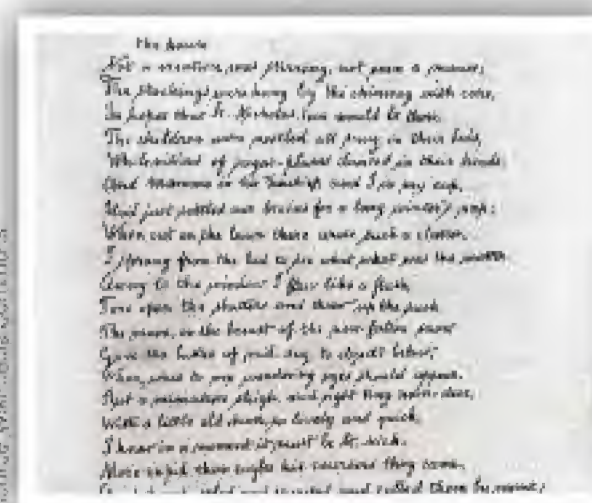 the house
Not a creature was stirring, not even a mouse;
The stockings were hung by the chimney with care,
In hopes that St. Nicholas soon would be there.
The children were nestled all snug in their beds,
While visions of sugar-plums danced in their heads;
And Mamma in her 'kerchief and I in my cap,
Had just settled our brains for a long winter's nap;
When out on the lawn there arose such a clatter
I sprang from the bed to see what was the matter.
Away to the window I flew like a flash,
Tore open the shutters and threw up the sash.
The moon, on the breast of the new fallen snow
Gave the lustre of mid-day to objects below;
When, what to my wondering eyes should appear,
But a miniature sleigh, and eight tiny rein-deer,
With a little old driver, so lively and quick,
I knew in a moment it must be St. Nick.
More rapid than eagles his coursers they came,
and called them by name;